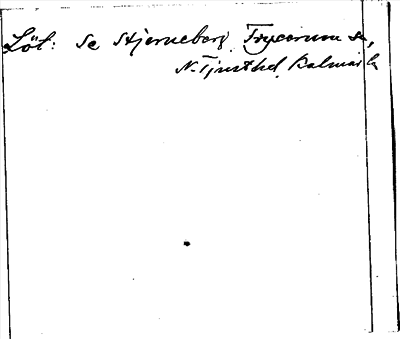 Löt: Se Stjerneborg, Tryserum sn,
N. Tjust hd, Kalmar l.